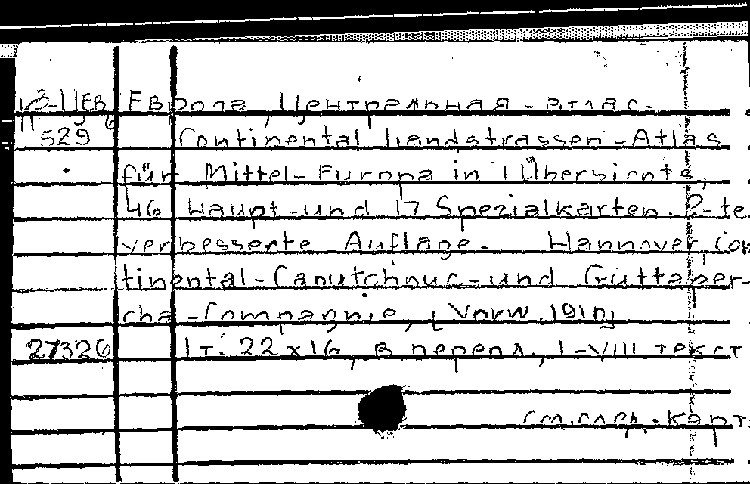 К3-ЦЕВ Европа, Центральная - атлас.
529 Continental Landstrassen-Atlas
für Mittel-Europa in 1 Übersichts,
46 Haupt- und 17 Spezialkarten. 2-te
verbesserte Auflage. Hannover, Con
tinental-Caoutchouc- und Guttaper-
cha-Compagnie, [Vorw. 1910]
27326 1 т. 22x16, в перепл., I-VIII текст
см. след. карт.